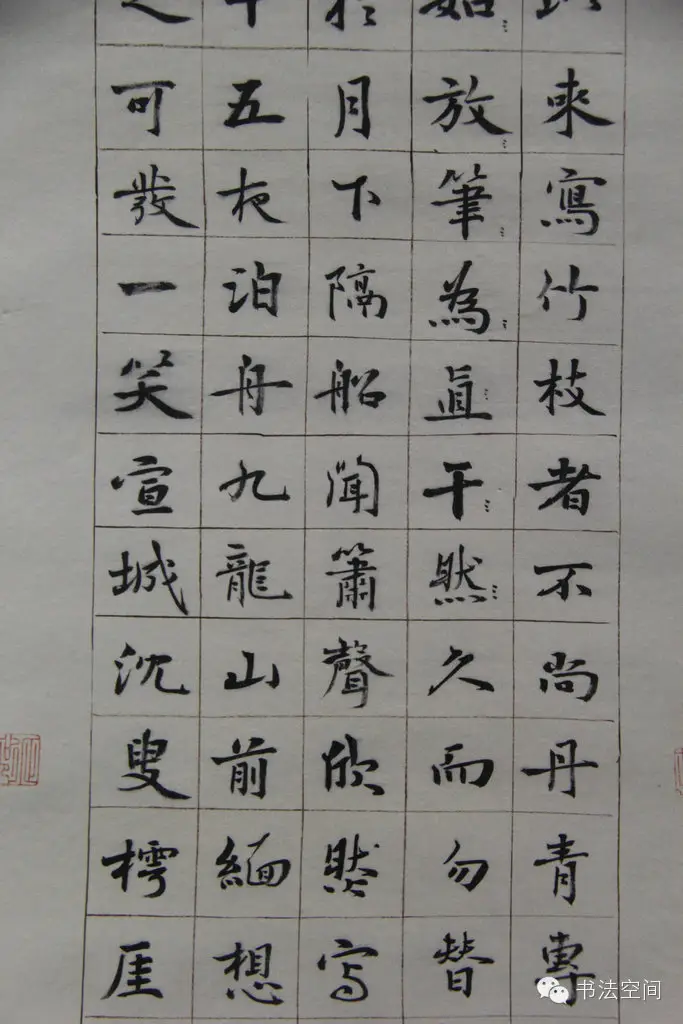 來寫竹枝者不尚丹青專
如放筆為直干然久而勿替
於月下隔船聞簫聲欣然写
十五夜泊舟九龍山前緬想
可發一笑宣城沈叟樗厓
书法空间